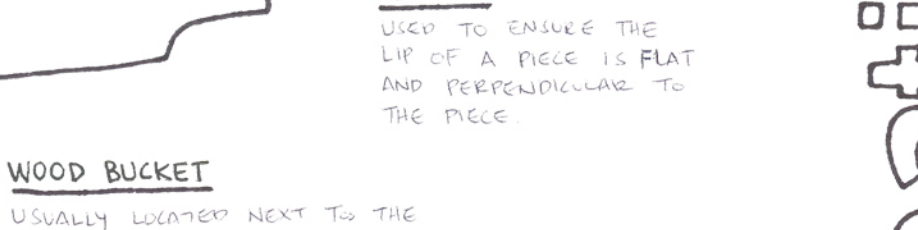 USED TO ENSURE THE
LIP OF A PIECE IS FLAT
AND PERPENDICULAR TO
THE PIECE.
WOOD BUCKET
USUALLY LOCATED NEXT TO THE